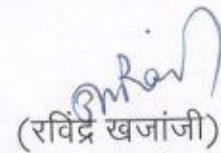 (रविंद्र खजांजी)